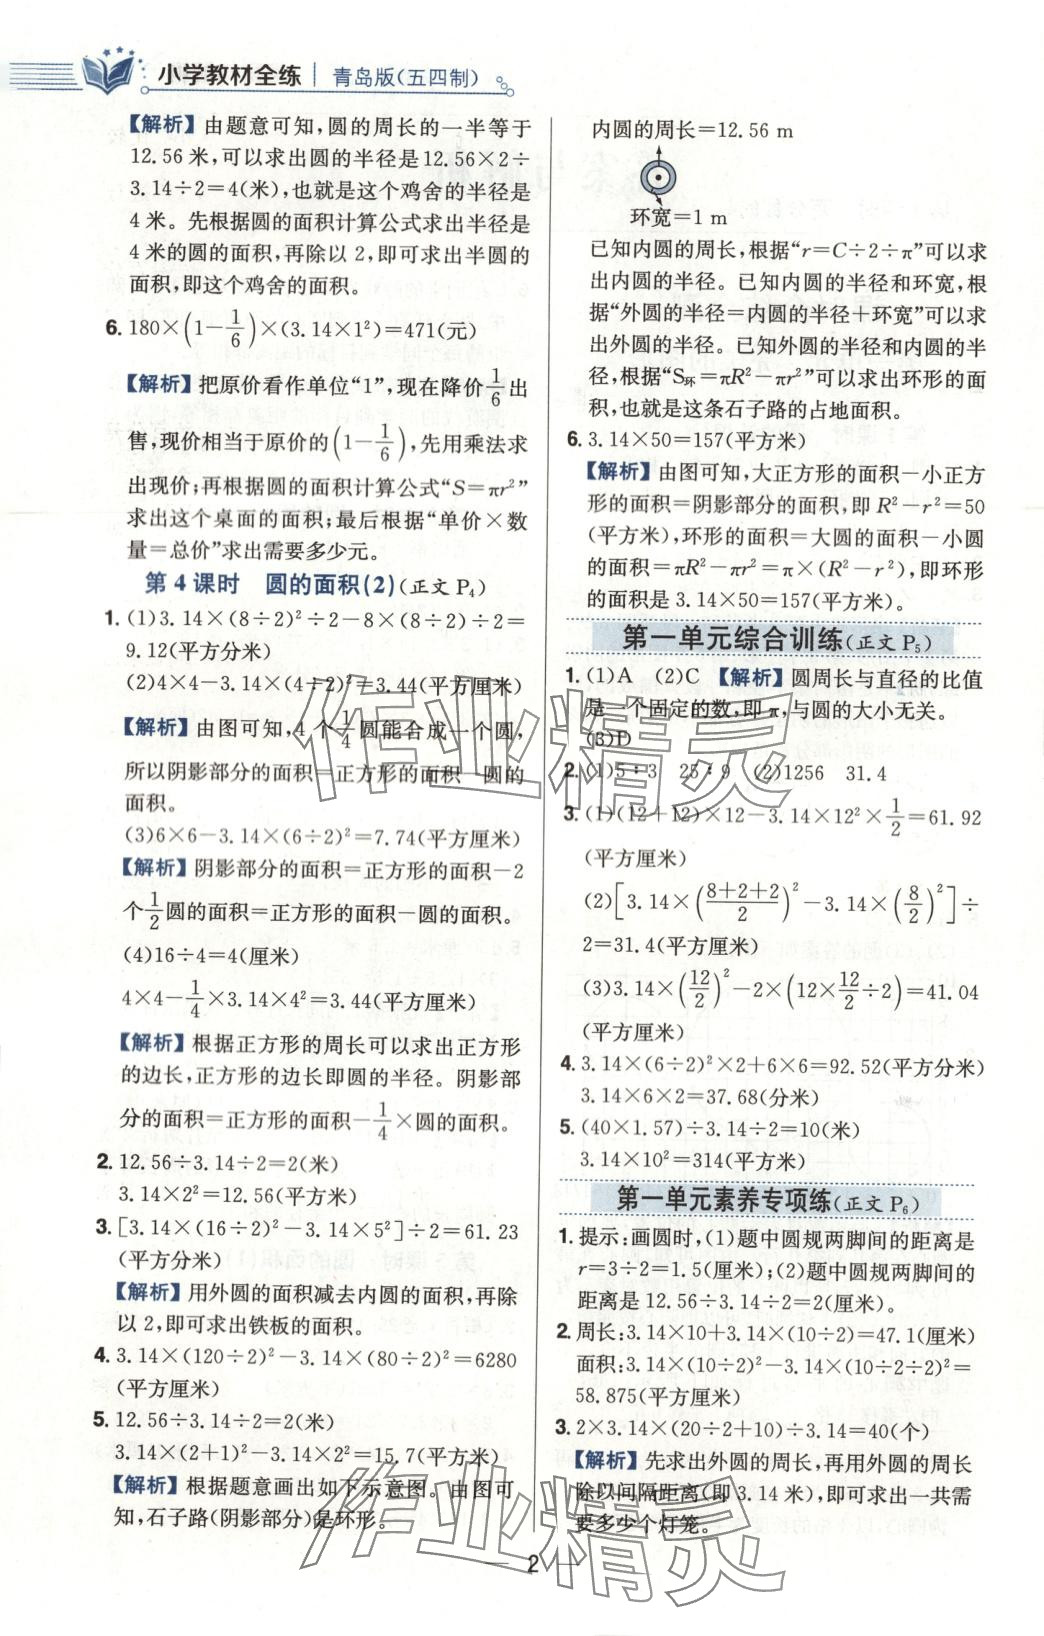 小学教材全练 | 青岛版(五四制)
【解析】由题意可知,圆的周长的一半等于
12.56米,可以求出圆的半径是12.56×2÷
3.14÷2=4(米),也就是这个鸡舍的半径是
4米。先根据圆的面积计算公式求出半径是
4米的圆的面积,再除以2,即可求出半圆的
面积,即这个鸡舍的面积。
6. 180×(1-1/6)×(3.14×1²)=471(元)
【解析】把原价看作单位“1”,现在降价1/6出
售,现价相当于原价的(1-1/6),先用乘法求
出现价;再根据圆的面积计算公式“S=πr²”
求出这个桌面的面积;最后根据“单价×数
量=总价”求出需要多少元。
第4课时 圆的面积(2)(正文P₄)
1. (1)3.14×(8÷2)²÷2-8×(8÷2)÷2=
9.12(平方分米)
(2)4×4-3.14×(4÷2)²=3.44(平方厘米)
【解析】由图可知,4个1/4圆能合成一个圆,
所以阴影部分的面积=正方形的面积-圆的
面积。
(3)6×6-3.14×(6÷2)²=7.74(平方厘米)
【解析】阴影部分的面积=正方形的面积-2
个1/2圆的面积=正方形的面积-圆的面积。
(4)16÷4=4(厘米)
4×4-1/4×3.14×4²=3.44(平方厘米)
【解析】根据正方形的周长可以求出正方形
的边长,正方形的边长即圆的半径。阴影部
分的面积=正方形的面积-1/4×圆的面积。
2. 12.56÷3.14÷2=2(米)
3.14×2²=12.56(平方米)
3. [3.14×(16÷2)²-3.14×5²]÷2=61.23
(平方厘米)
【解析】用外圆的面积减去内圆的面积,再除
以2,即可求出铁板的面积。
4. 3.14×(120÷2)²-3.14×(80÷2)²=6280
(平方厘米)
5. 12.56÷3.14÷2=2(米)
3.14×(2+1)²-3.14×2²=15.7(平方米)
【解析】根据题意画出如下示意图。由图可
知,石子路(阴影部分)是环形。
内圆的周长=12.56 m
环宽=1 m
已知内圆的周长,根据“r=C÷2÷π”可以求
出内圆的半径。已知内圆的半径和环宽,根
据“外圆的半径=内圆的半径+环宽”可以求
出外圆的半径。已知外圆的半径和内圆的半
径,根据“S环=πR²-πr²”可以求出环形的面
积,也就是这条石子路的占地面积。
6. 3.14×50=157(平方米)
【解析】由图可知,大正方形的面积-小正方
形的面积=阴影部分的面积,即R²-r²=50
(平方米),环形的面积=大圆的面积-小圆
的面积=πR²-πr²=π×(R²-r²),即环形
的面积是3.14×50=157(平方米)。
第一单元综合训练(正文P₅)
1. (1)A (2)C 【解析】圆周长与直径的比值
是一个固定的数,即π,与圆的大小无关。
(3)D
2. (1)5∶3 25∶9 (2)1256 31.4
3. (1)(12+12)×12-3.14×12²×1/2=61.92
(平方厘米)
(2)[3.14×((8+2+2)/2)²-3.14×(8/2)²]÷
2=31.4(平方厘米)
(3)3.14×(12/2)²-2×(12×12/2÷2)=41.04
(平方厘米)
4. 3.14×(6÷2)²×2+6×6=92.52(平方分米)
3.14×6×2=37.68(分米)
5. (40×1.57)÷3.14÷2=10(米)
3.14×10²=314(平方米)
第一单元素养专项练(正文P₆)
1. 提示:画圆时,(1)题中圆规两脚间的距离是
r=3÷2=1.5(厘米);(2)题中圆规两脚间的
距离是12.56÷3.14÷2=2(厘米)。
2. 周长:3.14×10+3.14×(10÷2)=47.1(厘米)
面积:3.14×(10÷2)²-3.14×(10÷2÷2)²=
58.875(平方厘米)
3. 2×3.14×(20÷2+10)÷3.14=40(个)
【解析】先求出外圆的周长,再用外圆的周长
除以间隔距离(即3.14米),即可求出一共需
要多少个灯笼。
2
作业精灵
作业精灵